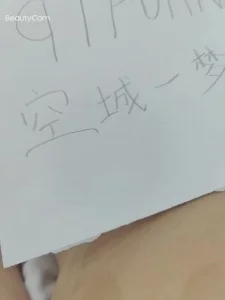 BeautyCam
空城一梦